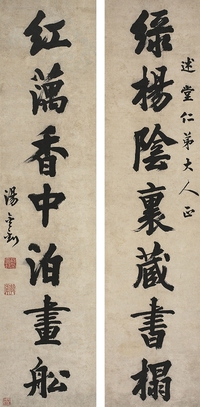 述堂仁弟大人正
綠楊陰裏藏書榻
紅藕香中泊畫船
湯金釗